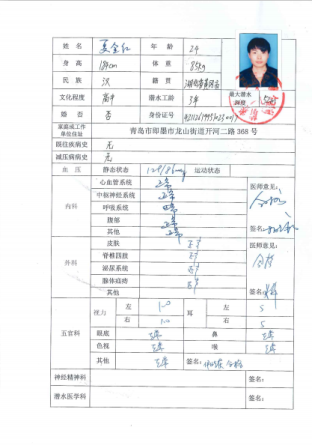 姓名 年龄 24
身高 184cm 体重 85kg
民族 汉 籍贯
文化程度 高中 潜水工龄 3年 最大潜水深度
婚否 否 身份证号
家庭或工作单位住址 青岛市即墨市龙山街道开河二路368号
既往疾病史 无
减压病病史 无
血压 静态状态 运动状态
内科 心血管系统 正常 医师意见:
中枢神经系统 正常 合格
呼吸系统 正常
腹部 正常
其他 正常 签名:
外科 皮肤 正常 医师意见:
脊椎四肢 正常 合格
泌尿系统 正常
腺体疝痔 正常
其他 签名:
五官科 视力 左 1.0 耳 左 5
右 1.0 右 5
眼底 正常 鼻 正常
色视 正常 喉 正常
其他 正常 签名: 合格
神经精神科 签名:
潜水医学科 签名: